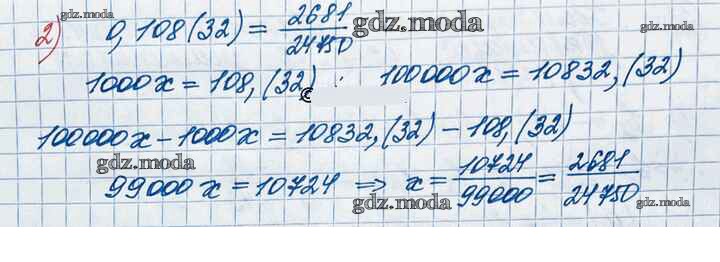 gdz.moda
2) 0,108(32) = 2681/24750 gdz.moda
gdz.moda
1000x = 108,(32) 100000x = 10832,(32)
100000x - 1000x = 10832,(32) - 108,(32)
gdz.moda gdz.moda
99000x = 10724 ⇒ x = 10724/99000 = 2681/24750
gdz.moda gdz.moda
gdz.moda